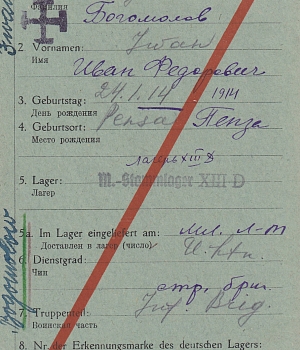 Фамилия
Богомолов
2. Vornamen: Iwan
Имя
Иван Федорович
3. Geburtstag: 24.1.14 1914
День рождения
4. Geburtsort: Pensa Пенза
Место рождения
лагерь XIII D
5. Lager: M.-Stammlager XIII D
Лагер
5a. Im Lager eingeliefert am: мл. л-т
Доставлен в лагер (число)
6. Dienstgrad: U. Ltn.
Чин
стр. бриг.
7. Truppenteil: Inf. Brig.
Воинская часть
8. Nr. der Erkennungsmarke des deutschen Lagers:
Bogomolow
Iwan